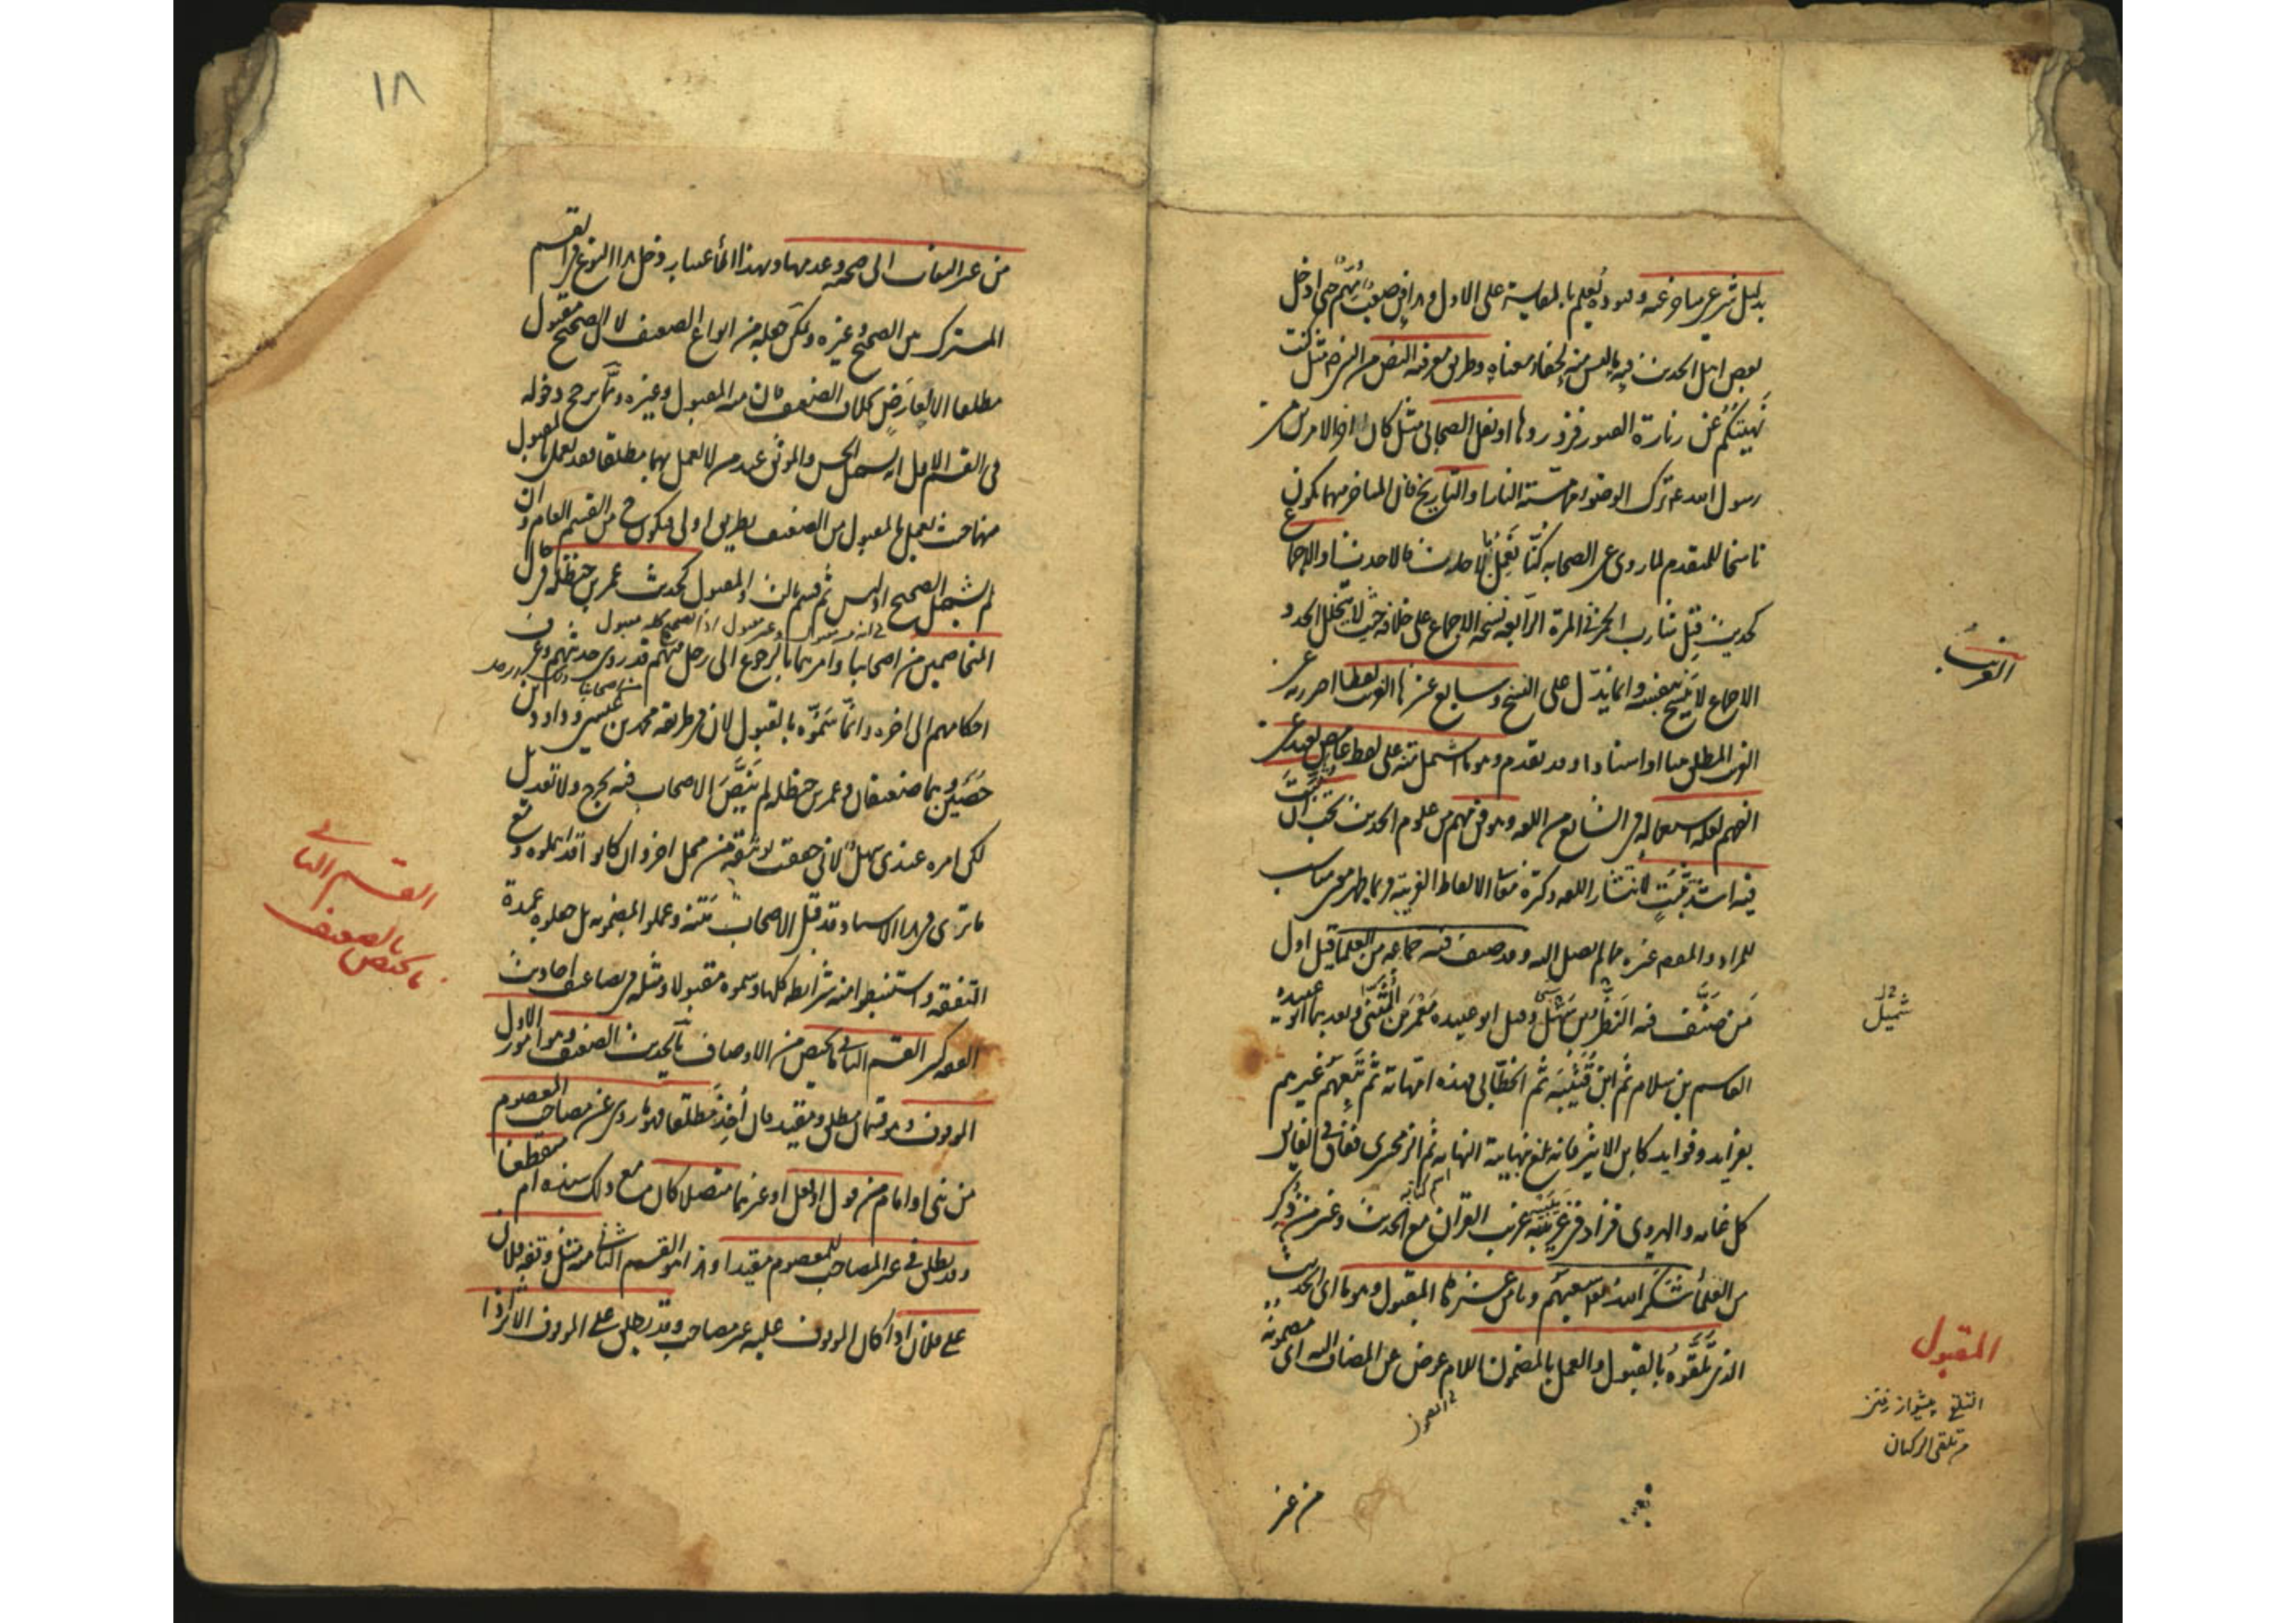 بدليل شرعي متأخر عنه وقيوده يعلم بالمقايسة على الاول وهذا فن صعب مهم حتى ادخل
بعض اهل الحديث فيه ما ليس منه لخفاء معناه وطريق معرفة النص من النبي ص مثل كنت
نهيتكم عن زيارة القبور فزوروها او نقل الصحابي مثل كان اخر الامرين من
رسول الله ترك الوضوء مما مسته النار او التاريخ فان المتاخر منهما يكون
ناسخا للمتقدم لما روي عن الصحابة كنا نعمل بالاحدث فالاحدث او الاجماع
كحديث قتل شارب الخمر في المرة الرابعة نسخه الاجماع على خلافه حيث لا يتخلل الحد و
الاجماع لا ينسخ بنفسه وانما يدل على النسخ وسابع عشرها الغريب لفظا احترز به عن
الغريب المطلق متنا او اسنادا وقد تقدم وهو ما اشتمل متنه على لفظ غامض بعيد عن
الفهم لقلة استعماله في الشايع من اللغة وهو فن مهم من علوم الحديث يجب ان يتثبت
فيه اشد تثبت لانتشار اللغة وكثرة معاني الالفاظ الغريبة فربما ظهر معنى مناسب
للمراد والمقصود غيره مما لم يصل اليه وقد صنف فيه جماعة من العلماء قيل اول
من صنف فيه النضر بن شميل وقيل ابو عبيدة معمر بن المثنى وبعدهما ابو عبيد
القاسم بن سلام ثم ابن قتيبة ثم الخطابي فهذه امهاته ثم تبعهم غيرهم
بفوايد وفرايد كابن الاثير فانه بلغ بنهايته النهاية ثم الزمخشري ففاق في الفايق
كل غاية والهروي فزاد في غريبيه غريب القران مع الحديث وغيرهم ذكر
من العلماء شكر الله سعيهم وثامن عشرها المقبول وهو ما اى الحديث
الذي تلقوه بالقبول والعمل بالمضمون اللام عوض عن المضاف اليه اى مضمونه
من غير
الغريب
شميل
المقبول
التلقي پيشواز رفتن
تلقى الركبان
١٨
من غير التفات الى صحته وعدمها وبهذا الاعتبار دخل هذا النوع في القسم
المشترك بين الصحيح وغيره ويمكن جعله من انواع الضعيف لان الصحيح مقبول
مطلقا الا لعارض بخلاف الضعيف فان منه المقبول وغيره ومما يرجح دخوله
في القسم الاول انه يشمل الحسن والموثق عند من لا يعمل بهما مطلقا فقد يعمل بالمقبول
منهما حيث يعمل بالمقبول من الضعيف بطريق اولى فيكون ح من القسم العام وان
لم يشمل الصحيح اذ ليس ثم قسم ثالث والمقبول كحديث عمر بن حنظلة في حال
المتخاصمين من اصحابنا وامرهما بالرجوع الى رجل منهم قد روى حديثهم وعرف
احكامهم الى اخره وانما سموه بالقبول لان في طريقه محمد بن عيسى وداود بن
حصين وهما ضعيفان وعمر بن حنظلة لم ينص الاصحاب فيه بجرح ولا تعديل
لكن امره عندي سهل لاني حققت توثيقه من محل اخر وان كانوا قد اهملوه ومع
ما ترى في هذا الاسناد قد قبل الاصحاب متنه وعملوا بمضمونه بل جعلوه عمدة
التفقه واستنبطوا منه شرائطه كلها وسموه مقبولا ومثله في تضاعيف احاديث
الفقه كثير القسم الثاني ما يختص من الاوصاف بالحديث الضعيف وهو امور الاول
الموقوف وهو قسمان مطلق ومقيد فان اخذ مطلقا فهو ما روي عن مصاحب المعصوم
من نبي او امام من قول او فعل او غيرهما متصلا كان مع ذلك سنده ام منقطعا
وقد يطلق في غير المصاحب للمعصوم مقيدا وهذا هو القسم الثاني منه مثل وقفه فلان
على فلان اذا كان الموقوف عليه غير مصاحب وقد يطلق على الموقوف الاثر اذا
القسم الثاني
ما يختص بالضعيف